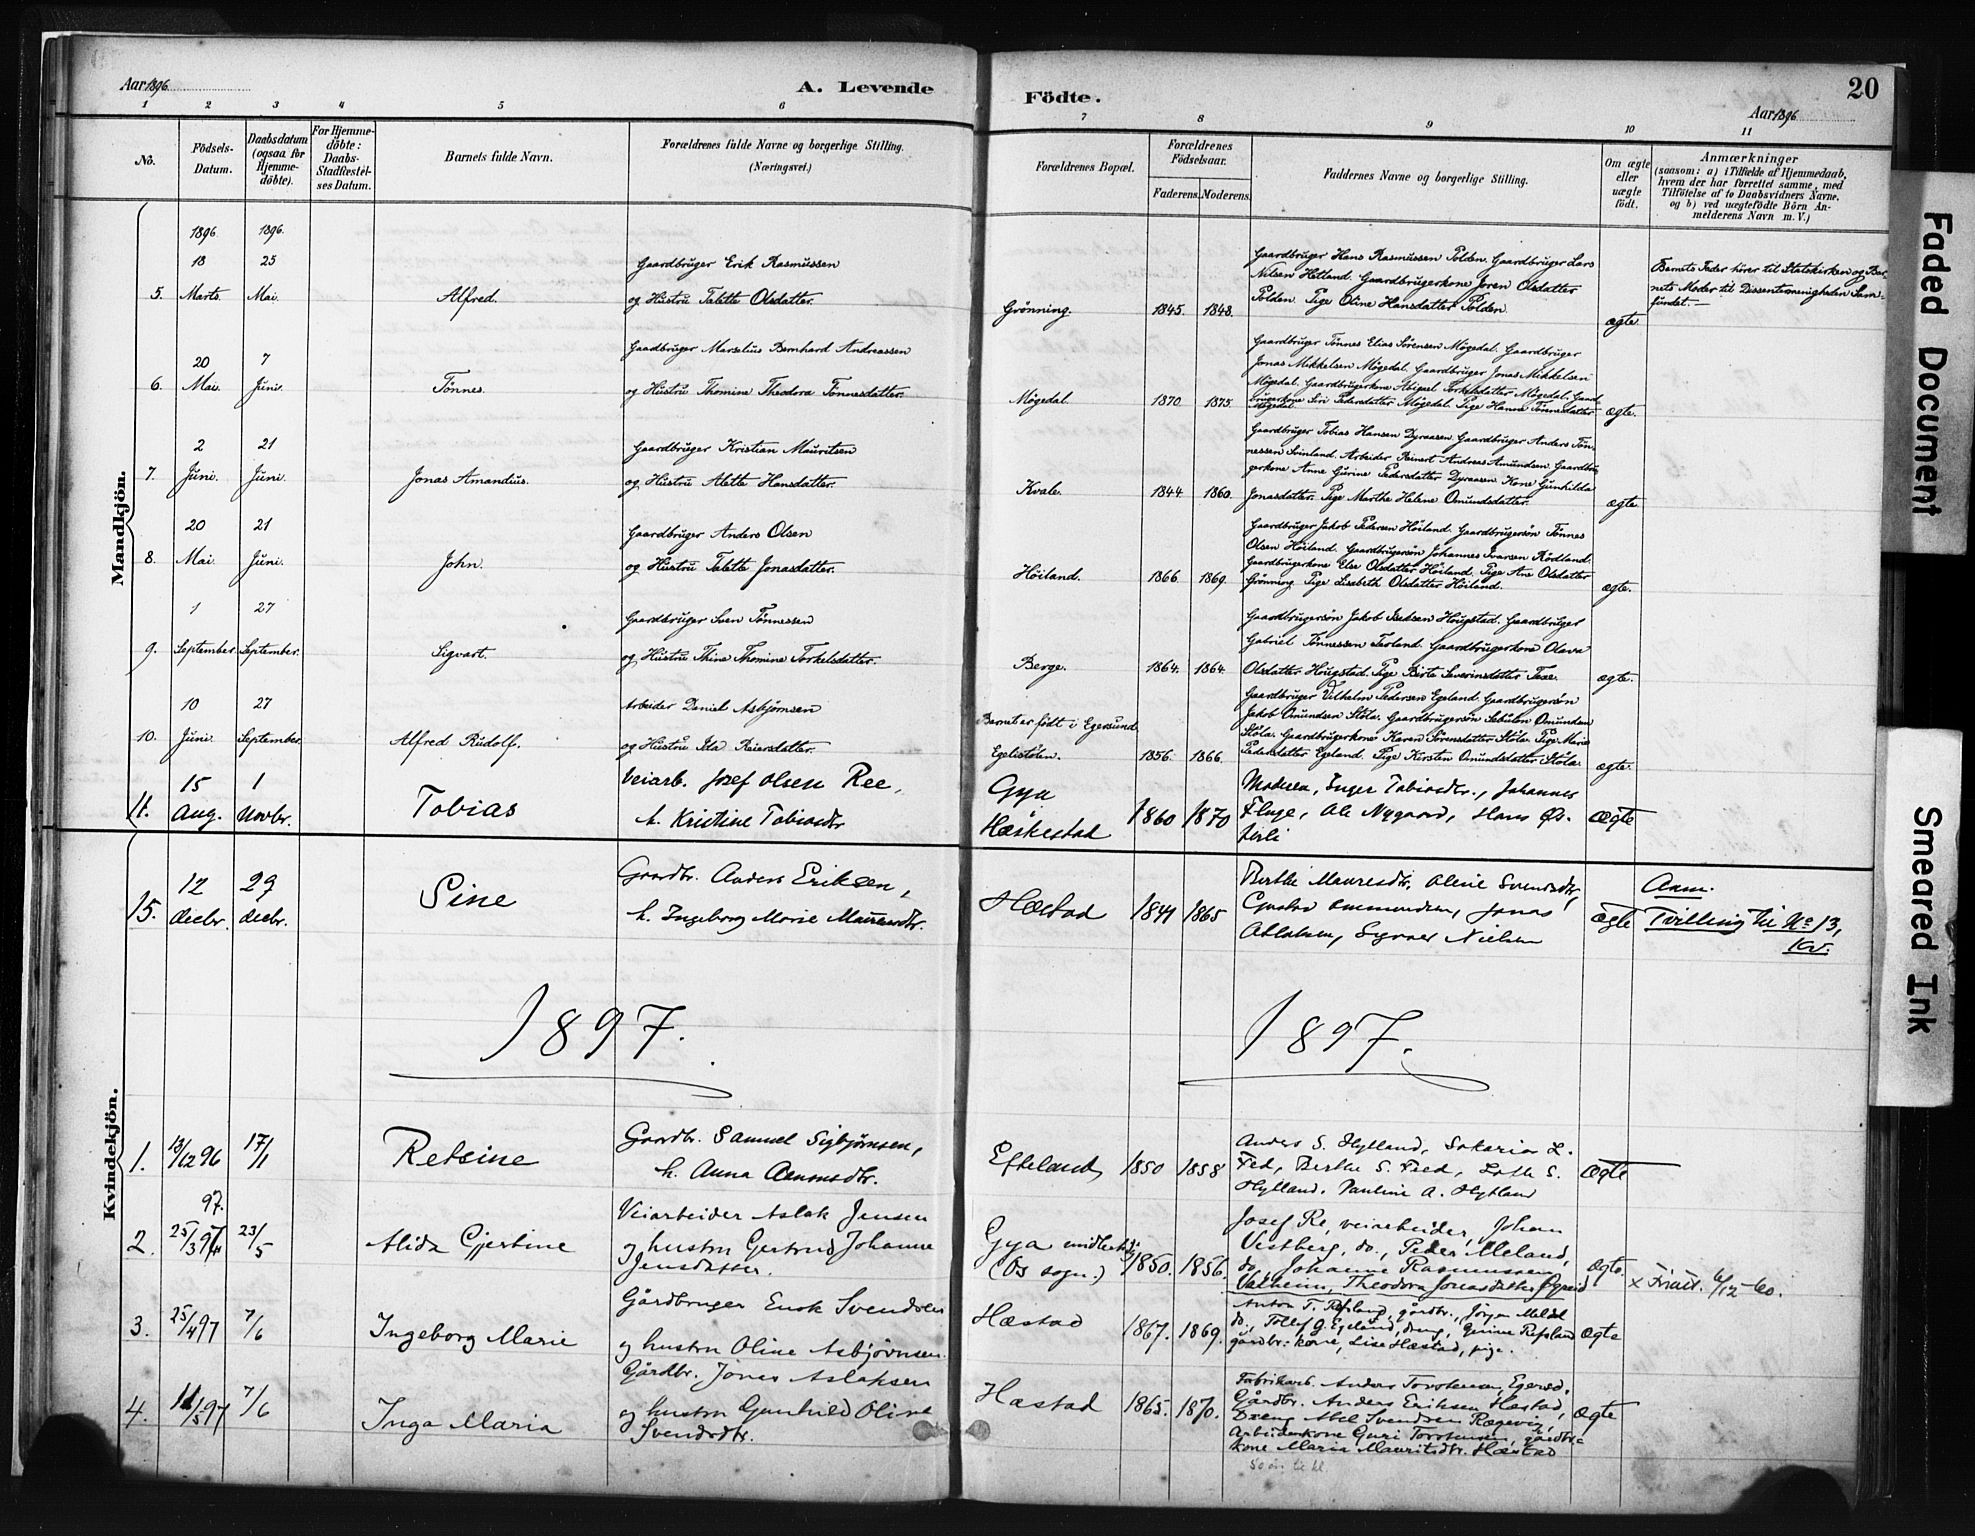 Aar 1896.
A. Levende
Födte.
20
Aar 1896
1 2 3 4 5 6 7 8 9 10 11
No.
Födsels-Datum.
Daabsdatum (ogsaa for Hjemme-döbte).
For Hjemme-döbte: Daabs-Stadfæstel-ses Datum.
Barnets fulde Navn.
Forældrenes fulde Navne og borgerlige Stilling.
(Næringsvei.)
Forældrenes Bopæl.
Forældrenes Födselsaar.
Faderens. Moderens.
Faddernes Navne og borgerlige Stilling.
Om ægte eller uægte födt.
Anmærkninger
(saasom: a) i Tilfælde af Hjemmedaab,
hvem der har forrettet samme, med
Tilföielse af to Daabsvidners Navne,
og b) ved uægtefödte Börn An-
melderens Navn m. V.)
Mandkjön.
1896. 1896.
5. 18 Marts. 25 Mai. Alfred.
Gaardbruger Erik Rasmussen
og Hustru Talette Olsdatter.
Grönning. 1845. 1848.
Gaardbruger Hans Rasmussen Polden. Gaardbruger Lars
Nilsen Hetland. Gaardbrugerkone Joren Olsdatter
Polden. Pige Oline Hansdatter Polden.
ægte
Barnets Fader hörer til Statskirken og Bar-
nets Moder til Dissentermenigheden Sam-
fundet.—
6. 20 Mai. 7 Juni. Tönnes.
Gaadbruger Marselius Bernhard Andreassen
og Hustru Thomine Theodora Tönnesdatter.
Mögedal. 1870. 1875.
Gaardbruger Tönnes Elias Sörensen Mögedal. Gaardbruger
Jonas Mikkelsen Mögedal. Gaardbruger Jonas Mikkelsen
Mögedal. Gaardbrugerkone Abigael Torkelsdatter Mögedal. Gaard-
brugerkone Siri Pedersdatter Mögedal. Pige Hanna Tönnesdatter
Mögedal.
ægte.
7. 2 Juni. 21 Juni. Jonas Amandus.
Gaardbruger Kristian Mauritsen
og Hustru Alette Hansdatter.
Kvale. 1844. 1860.
Gaardbruger Tobias Hansen Dyraasen. Gaardbruger Anders Tön-
nessen Svinland. Arbeider Reinert Andreas Amundsen. Gaardbru-
gerkone Anne Gurine Pedersdatter Dyraasen. Kone Gunhilda
Jonasdatter. Pige Marthe Helene Omundsdatter.
ægte
8. 20 Mai. 21 Juni. John.
Gaardbruger Anders Olsen
og Hustru Talette Jonasdatter.
Höiland. 1866. 1869.
Gaardbruger Jakob Pedersen Höiland. Gaardbrugersön Tönnes
Olsen Höiland. Gaardbrugersön Johannes Ivarsen Rödland.
Gaardbrugerkone Else Olsdatter Höiland. Pige Ane Olsdatter
Grönning. Pige Lisabeth Olsdatter Höiland.
ægte.
9. 1 September. 27 September. Sigvart.
Gaardbruger Sven Tönnessen
og Hustru Thine Thomine Torkelsdatter.
Berge. 1864. 1864.
Gaardbrugersön Jakob Isaksen Hougstad. Gaardbruger
Gabriel Tönnessen Terland. Gaardbrugerkone Oleva
Olsdatter Hougstad. Pige Birte Severinsdatter Texe.
ægte.
10. 10 Juni. 27 September. Alfred Rudolf.
Arbeider Daniel Asbjörnsen
og Hustru Ida Reiersdatter.
Barnet er födt i Egersund
Egelistölen. 1856. 1866.
Gaardbruger Vilhelm Pedersen Egeland. Gaardbrugersön
Jakob Omundsen Stöla. Gaardbrugersön Sebulon Omundsen
Stöla. Gaardbrugerkone Karen Sörensdatter Stöla. Pige Marie
Pedersdatter Egeland. Pige Kirsten Omundsdatter Stöla.
ægte.
11. 15 Aug. 1 Novbr. Tobias
Veiarb. Josef Olsen Ree,
h. Kristine Tobiasdtr
Gya
Heskestad 1860 1870
Inger Tobiasdtr., Johannes
Fluge, Ole Nygaard, Hans
ægte
Kvindekjön.
15. 12 decbr. 29 decbr. Sine
Gaardbr. Anders Eriksen,
h. Ingeborg Marie Mauritsdtr.
Hæstad 1841 1865
Berthe Mauritsdtr, Oline Svendsdtr,
Gustav Ommundsen, Jonas
Aslaksen, Nielsen
ægte
Anm.
Tvilling til No 13,
Kv.
1897.
1897.
1. 13/12 96 17/1 Retsine
Gaardbr. Samuel Sigbjørnsen,
h. Anna
Efteland 1850 1858
Anders S. Hylland, Sakarias L.
Fed, Berthe S. Fed, S.
Hylland, Pauline A. Hylland
ægte
97.
2. 25/3 97 23/5 Alida Gjertine
Veiarbeider Aslak Jensen
og hustru Gertrud Johanne
Jensdatter.
Gya
(Os sogn.) 1850. 1856.
Josef Re, veiarbeider, Johan
Vestberg, do., Peder Meland,
do, Johanne Rasmussen
Theodora Jonasdatter
ægte.
3. 25/4 97 7/6 Ingeborg Marie
Gårdbruger Enok Svendsen
og hustru Oline Asbjörnsen.
Hæstad 1867. 1869.
Anton T. Refsland, gårdbr., Jörgen
do., Tollef G. Egeland, dreng, Gurine Refsland
gårdbr. kone, Lise Hæstad, pige.
ægte
4. 11/5 97 7/6 Inga Maria
Gårdbr. Jonas Aslaksen
og hustru Gunhild Oline
Svendsdtr.
Hæstad 1865. 1870.
Fabrikarb. Anders Torstensen, Egersd.
Gårdbr. Anders Eriksen Hæstad,
Dreng Abel Svendsen Rægevig,
Arbeiderkone Guri Torstensen, gårdbr=
kone Maria Mauritsdtr. Hæstad
ægte
Faded Document
Smeared Ink